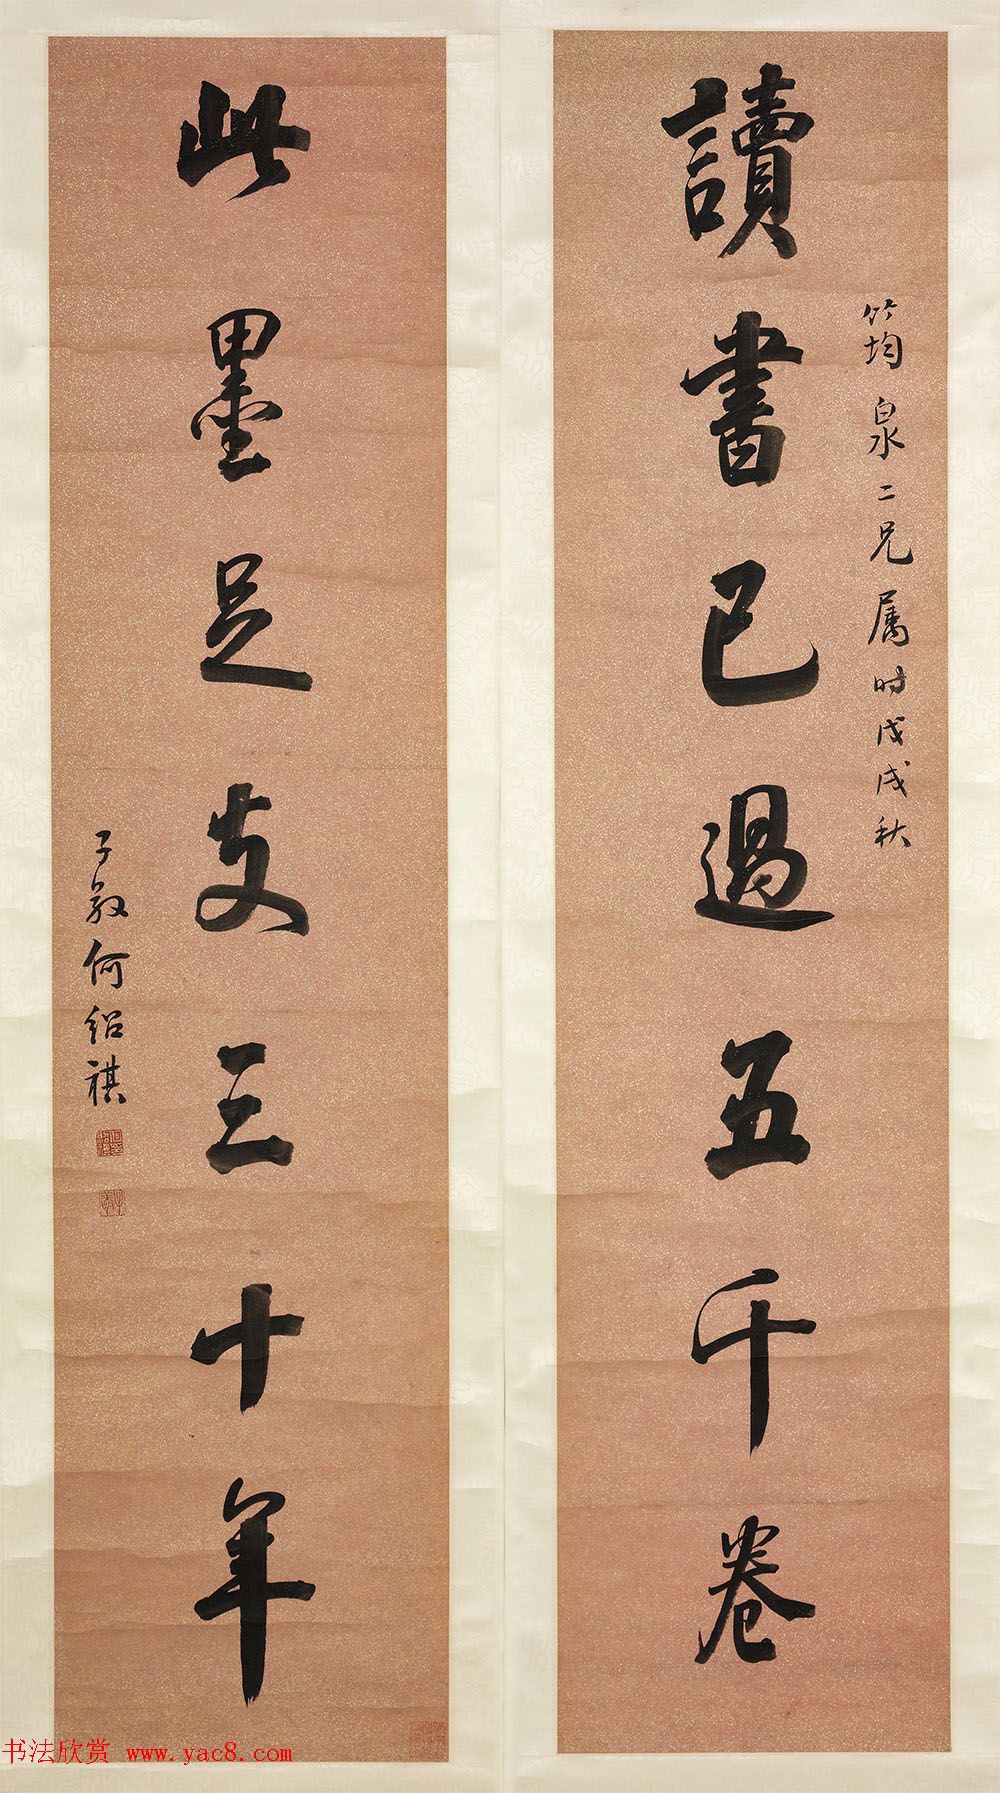 讀書已過五千卷
筠泉二兄属时戊戌秋
此墨足支三十年
子敬何绍祺
书法欣赏 www.yac8.com